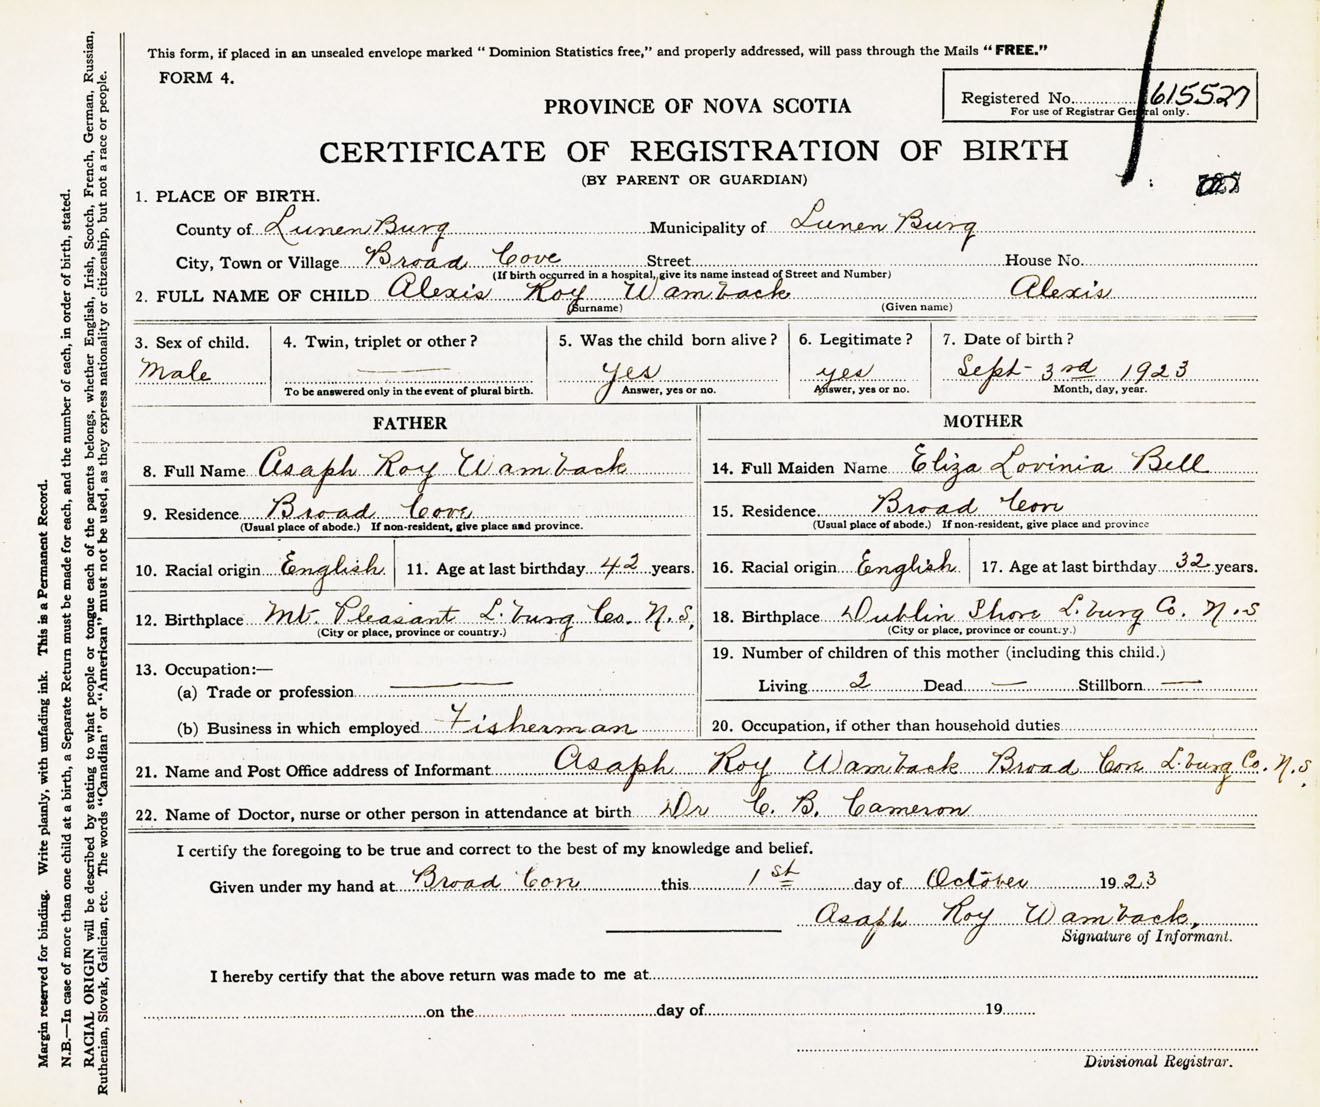 This form, if placed in an unsealed envelope marked "Dominion Statistics free," and properly addressed, will pass through the Mails "FREE."
FORM 4.
Registered No. 615527
For use of Registrar General only.
PROVINCE OF NOVA SCOTIA
CERTIFICATE OF REGISTRATION OF BIRTH
(BY PARENT OR GUARDIAN)
1. PLACE OF BIRTH.
County of LunenBurg Municipality of LunenBurg
City, Town or Village Broad Cove Street House No.
(If birth occurred in a hospital, give its name instead of Street and Number)
2. FULL NAME OF CHILD Alexis Roy Wamback Alexis
(Surname) (Given name)
3. Sex of child. 4. Twin, triplet or other? 5. Was the child born alive? 6. Legitimate? 7. Date of birth?
Male — yes yes Sept- 3rd 1923
To be answered only in the event of plural birth. Answer, yes or no. Answer, yes or no. Month, day, year.
FATHER MOTHER
8. Full Name Asaph Roy Wamback 14. Full Maiden Name Eliza Lovinia Bell
9. Residence Broad Cove 15. Residence Broad Cove
(Usual place of abode.) If non-resident, give place and province. (Usual place of abode.) If non-resident, give place and province
10. Racial origin English 11. Age at last birthday 42 years. 16. Racial origin English 17. Age at last birthday 32 years.
12. Birthplace Mt. Pleasant L.burg Co. N.S, 18. Birthplace Dublin Shore L.burg Co. N.S
(City or place, province or country.) (City or place, province or country.)
13. Occupation:— 19. Number of children of this mother (including this child.)
(a) Trade or profession — Living 2 Dead — Stillborn —
(b) Business in which employed Fisherman 20. Occupation, if other than household duties
21. Name and Post Office address of Informant Asaph Roy Wamback Broad Cove L.burg Co. N.S.
22. Name of Doctor, nurse or other person in attendance at birth Dr C. B. Cameron
I certify the foregoing to be true and correct to the best of my knowledge and belief.
Given under my hand at Broad Cove this 1st day of October 1923
Asaph Roy Wamback,
Signature of Informant.
I hereby certify that the above return was made to me at
on the day of 19
Divisional Registrar.
Margin reserved for binding. Write plainly, with unfading ink. This is a Permanent Record.
N.B.—In case of more than one child at a birth, a Separate Return must be made for each, and the number of each, in order of birth, stated.
RACIAL ORIGIN will be described by stating to what people or tongue each of the parents belongs, whether English, Irish, Scotch, French, German, Russian,
Ruthenian, Slovak, Galician, etc. The words "Canadian" or "American" must not be used, as they express nationality or citizenship, but not a race or people.